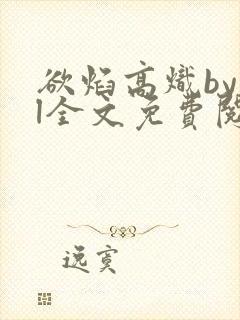 欲焰高熾by
l全文免費閱
逸寞